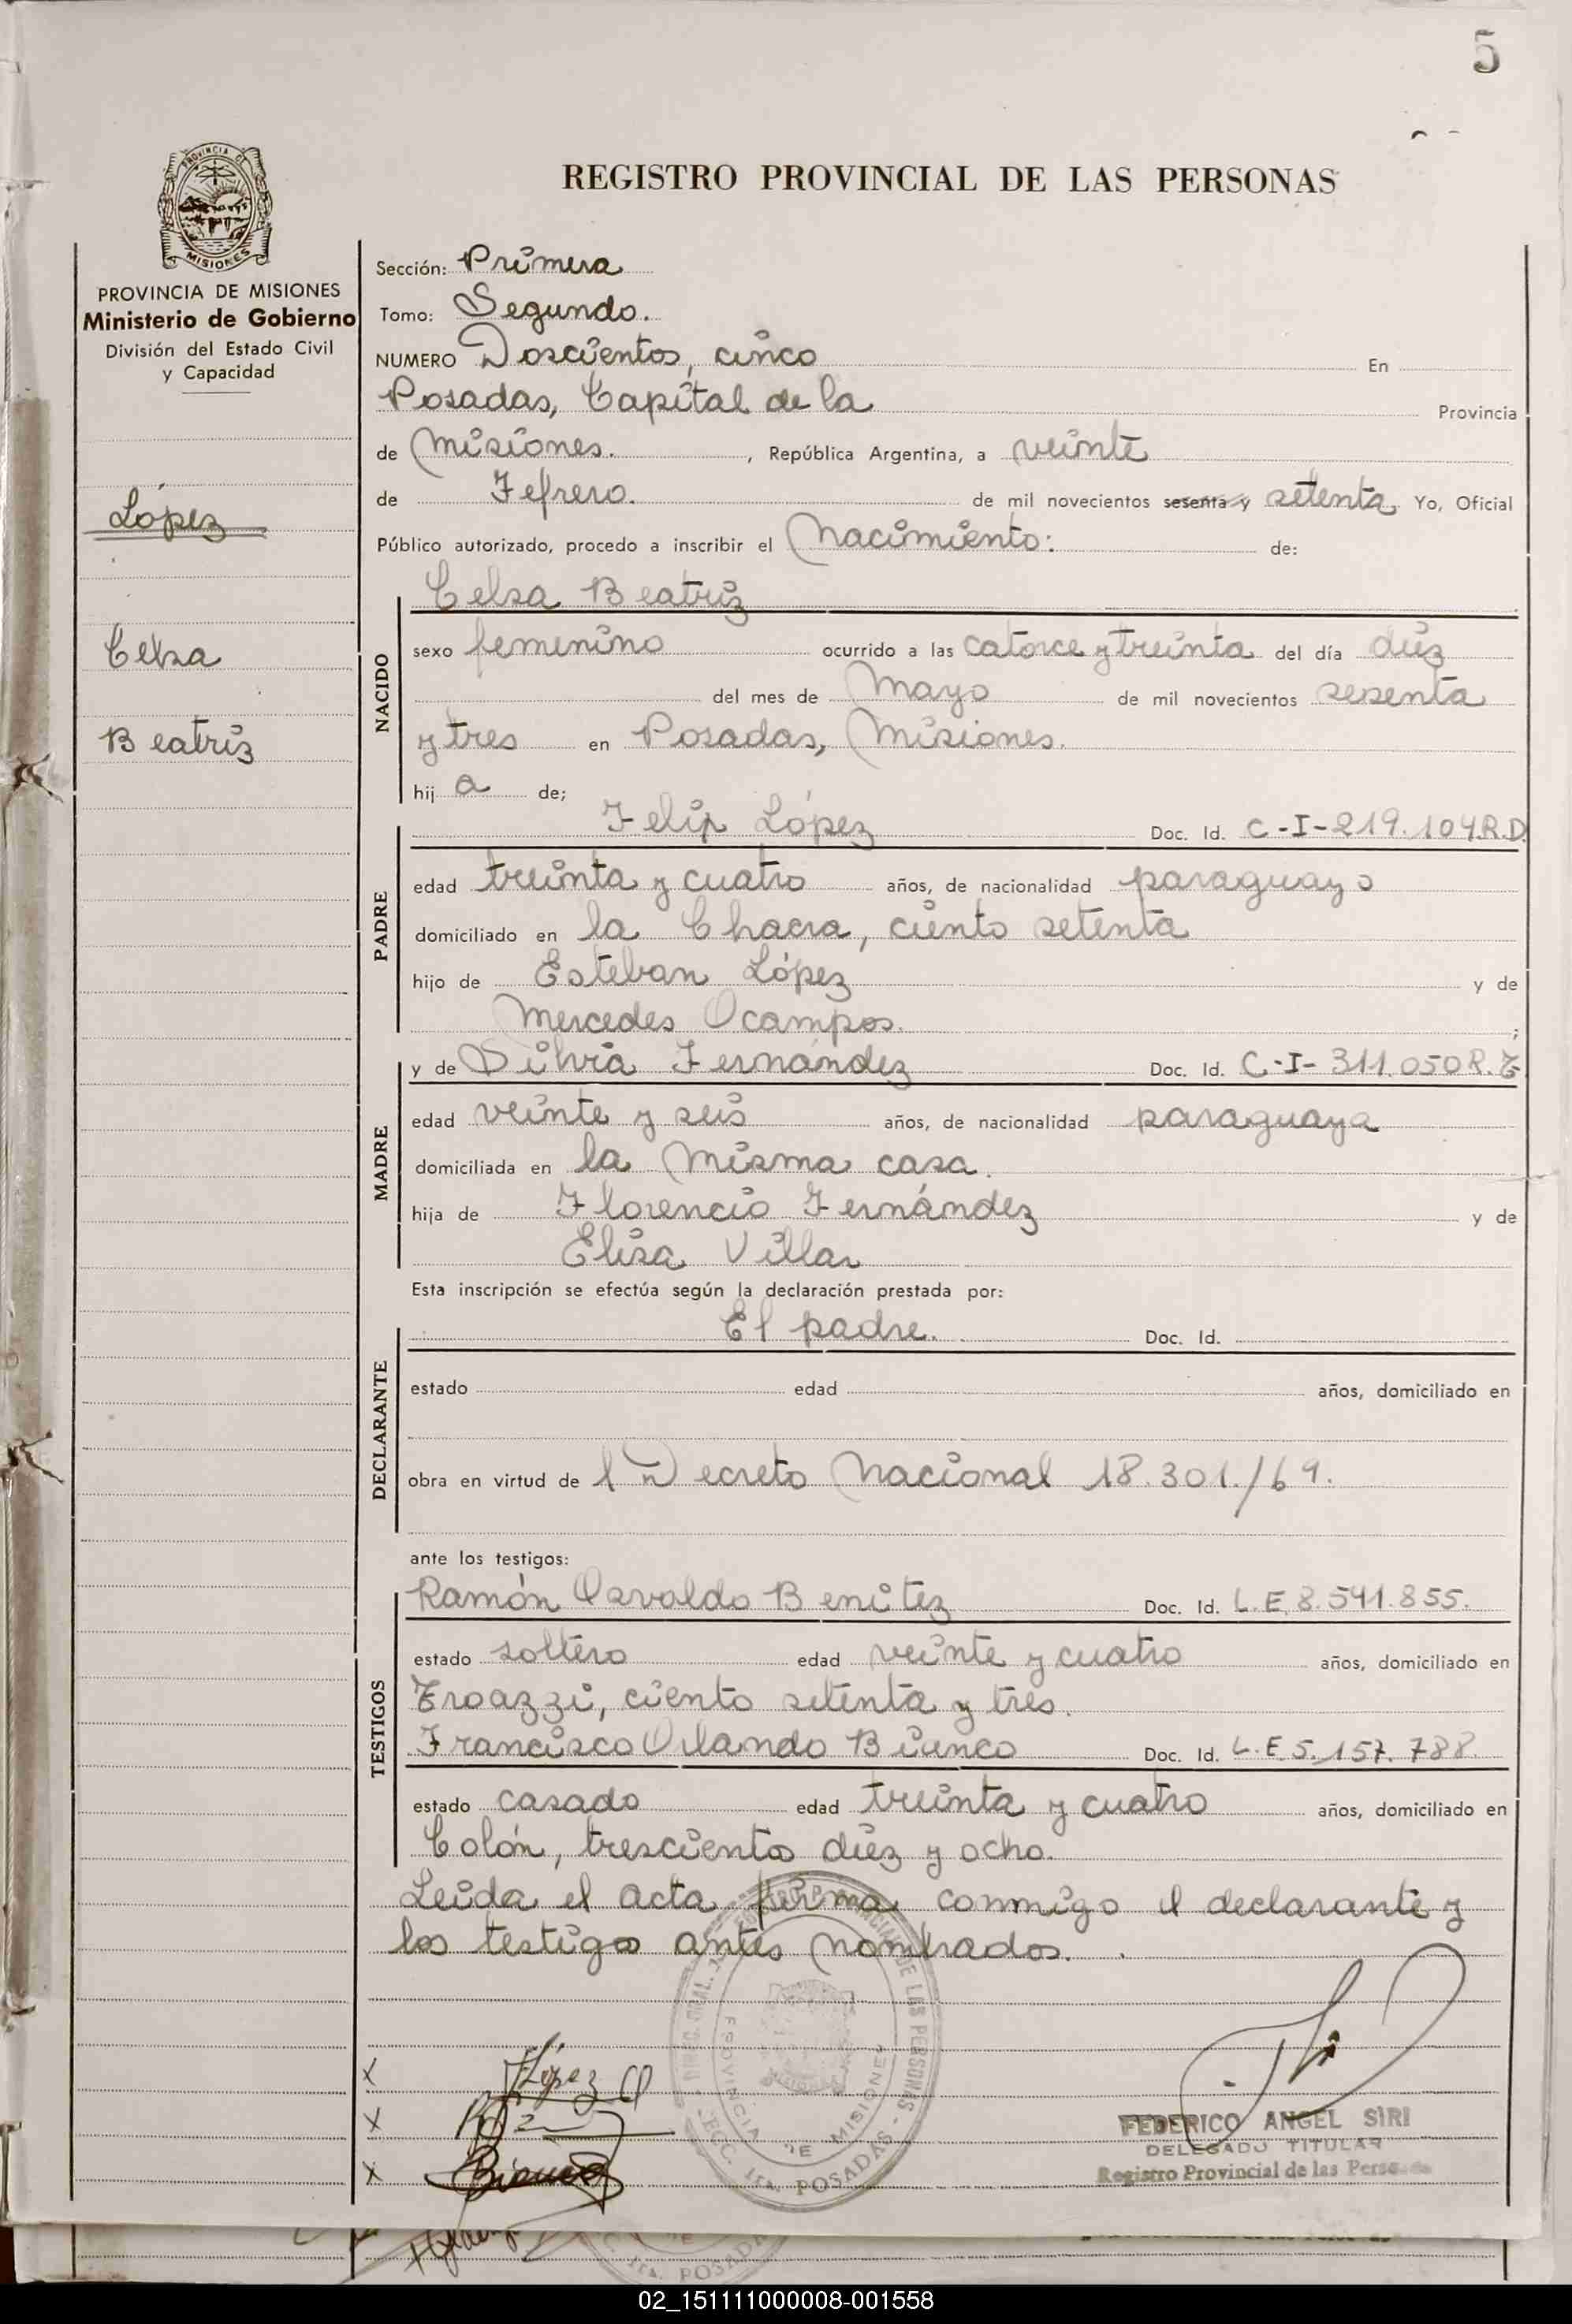 5
REGISTRO PROVINCIAL DE LAS PERSONAS
PROVINCIA DE
MISIONES
PROVINCIA DE MISIONES
Ministerio de Gobierno
División del Estado Civil
y Capacidad
López
Celsa
Beatriz
Sección: Primera
Tomo: Segundo.
NUMERO Doscientos, cinco En
Posadas, Capital de la Provincia
de Misiones. , República Argentina, a veinte
de Febrero. de mil novecientos sesenta y setenta Yo, Oficial
Público autorizado, procedo a inscribir el Nacimiento: de:
NACIDO
Celsa Beatriz
sexo femenino ocurrido a las catorce y treinta del día diez
del mes de Mayo de mil novecientos sesenta
y tres en Posadas, Misiones.
hij a de;
PADRE
Felip López Doc. Id. C-I-219.104.R.D.
edad treinta y cuatro años, de nacionalidad paraguayo
domiciliado en la Chacra, ciento setenta
hijo de Esteban López y de
Mercedes Ocampos. ;
MADRE
y de Silvia Fernández Doc. Id. C-I-311.050 R.
edad veinte y seis años, de nacionalidad paraguaya
domiciliada en la misma casa.
hija de Florencio Fernández y de
Elisa Villar
Esta inscripción se efectúa según la declaración prestada por:
DECLARANTE
El padre. Doc. Id.
estado edad años, domiciliado en
obra en virtud de l Decreto Nacional 18.301./69.
ante los testigos:
TESTIGOS
Ramón Osvaldo Benitez Doc. Id. L.E. 8.541.855.
estado soltero edad veinte y cuatro años, domiciliado en
ciento setenta y tres.
Francisco Orlando Bianco Doc. Id. L.E. 5.157.788.
estado casado edad treinta y cuatro años, domiciliado en
Colón, trescientos diez y ocho.
Leida el acta firma conmigo el declarante y
los testigos antes nombrados.
DE LAS PERSONAS
PROVINCIA DE MISIONES
POSADAS
X López
X
X Bianco
FEDERICO ANGEL SIRI
DELEGADO TITULAR
Registro Provincial de las Personas
POSADA
02_151111000008-001558